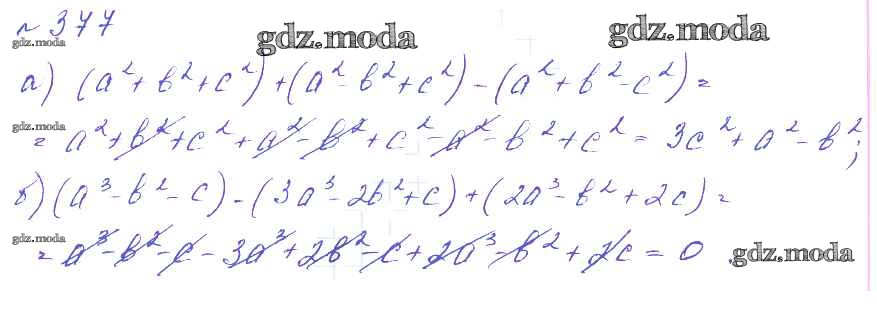 № 377
gdz.moda
gdz.moda
gdz.moda
а) (a² + b² + c²) + (a² - b² + c²) - (a² + b² - c²) =
gdz.moda
= a² + b² + c² + a² - b² + c² - a² - b² + c² = 3c² + a² - b²;
б) (a³ - b² - c) - (3a³ - 2b² + c) + (2a³ - b² + 2c) =
gdz.moda
= a³ - b² - c - 3a³ + 2b² - c + 2a³ - b² + 2c = 0
gdz.moda